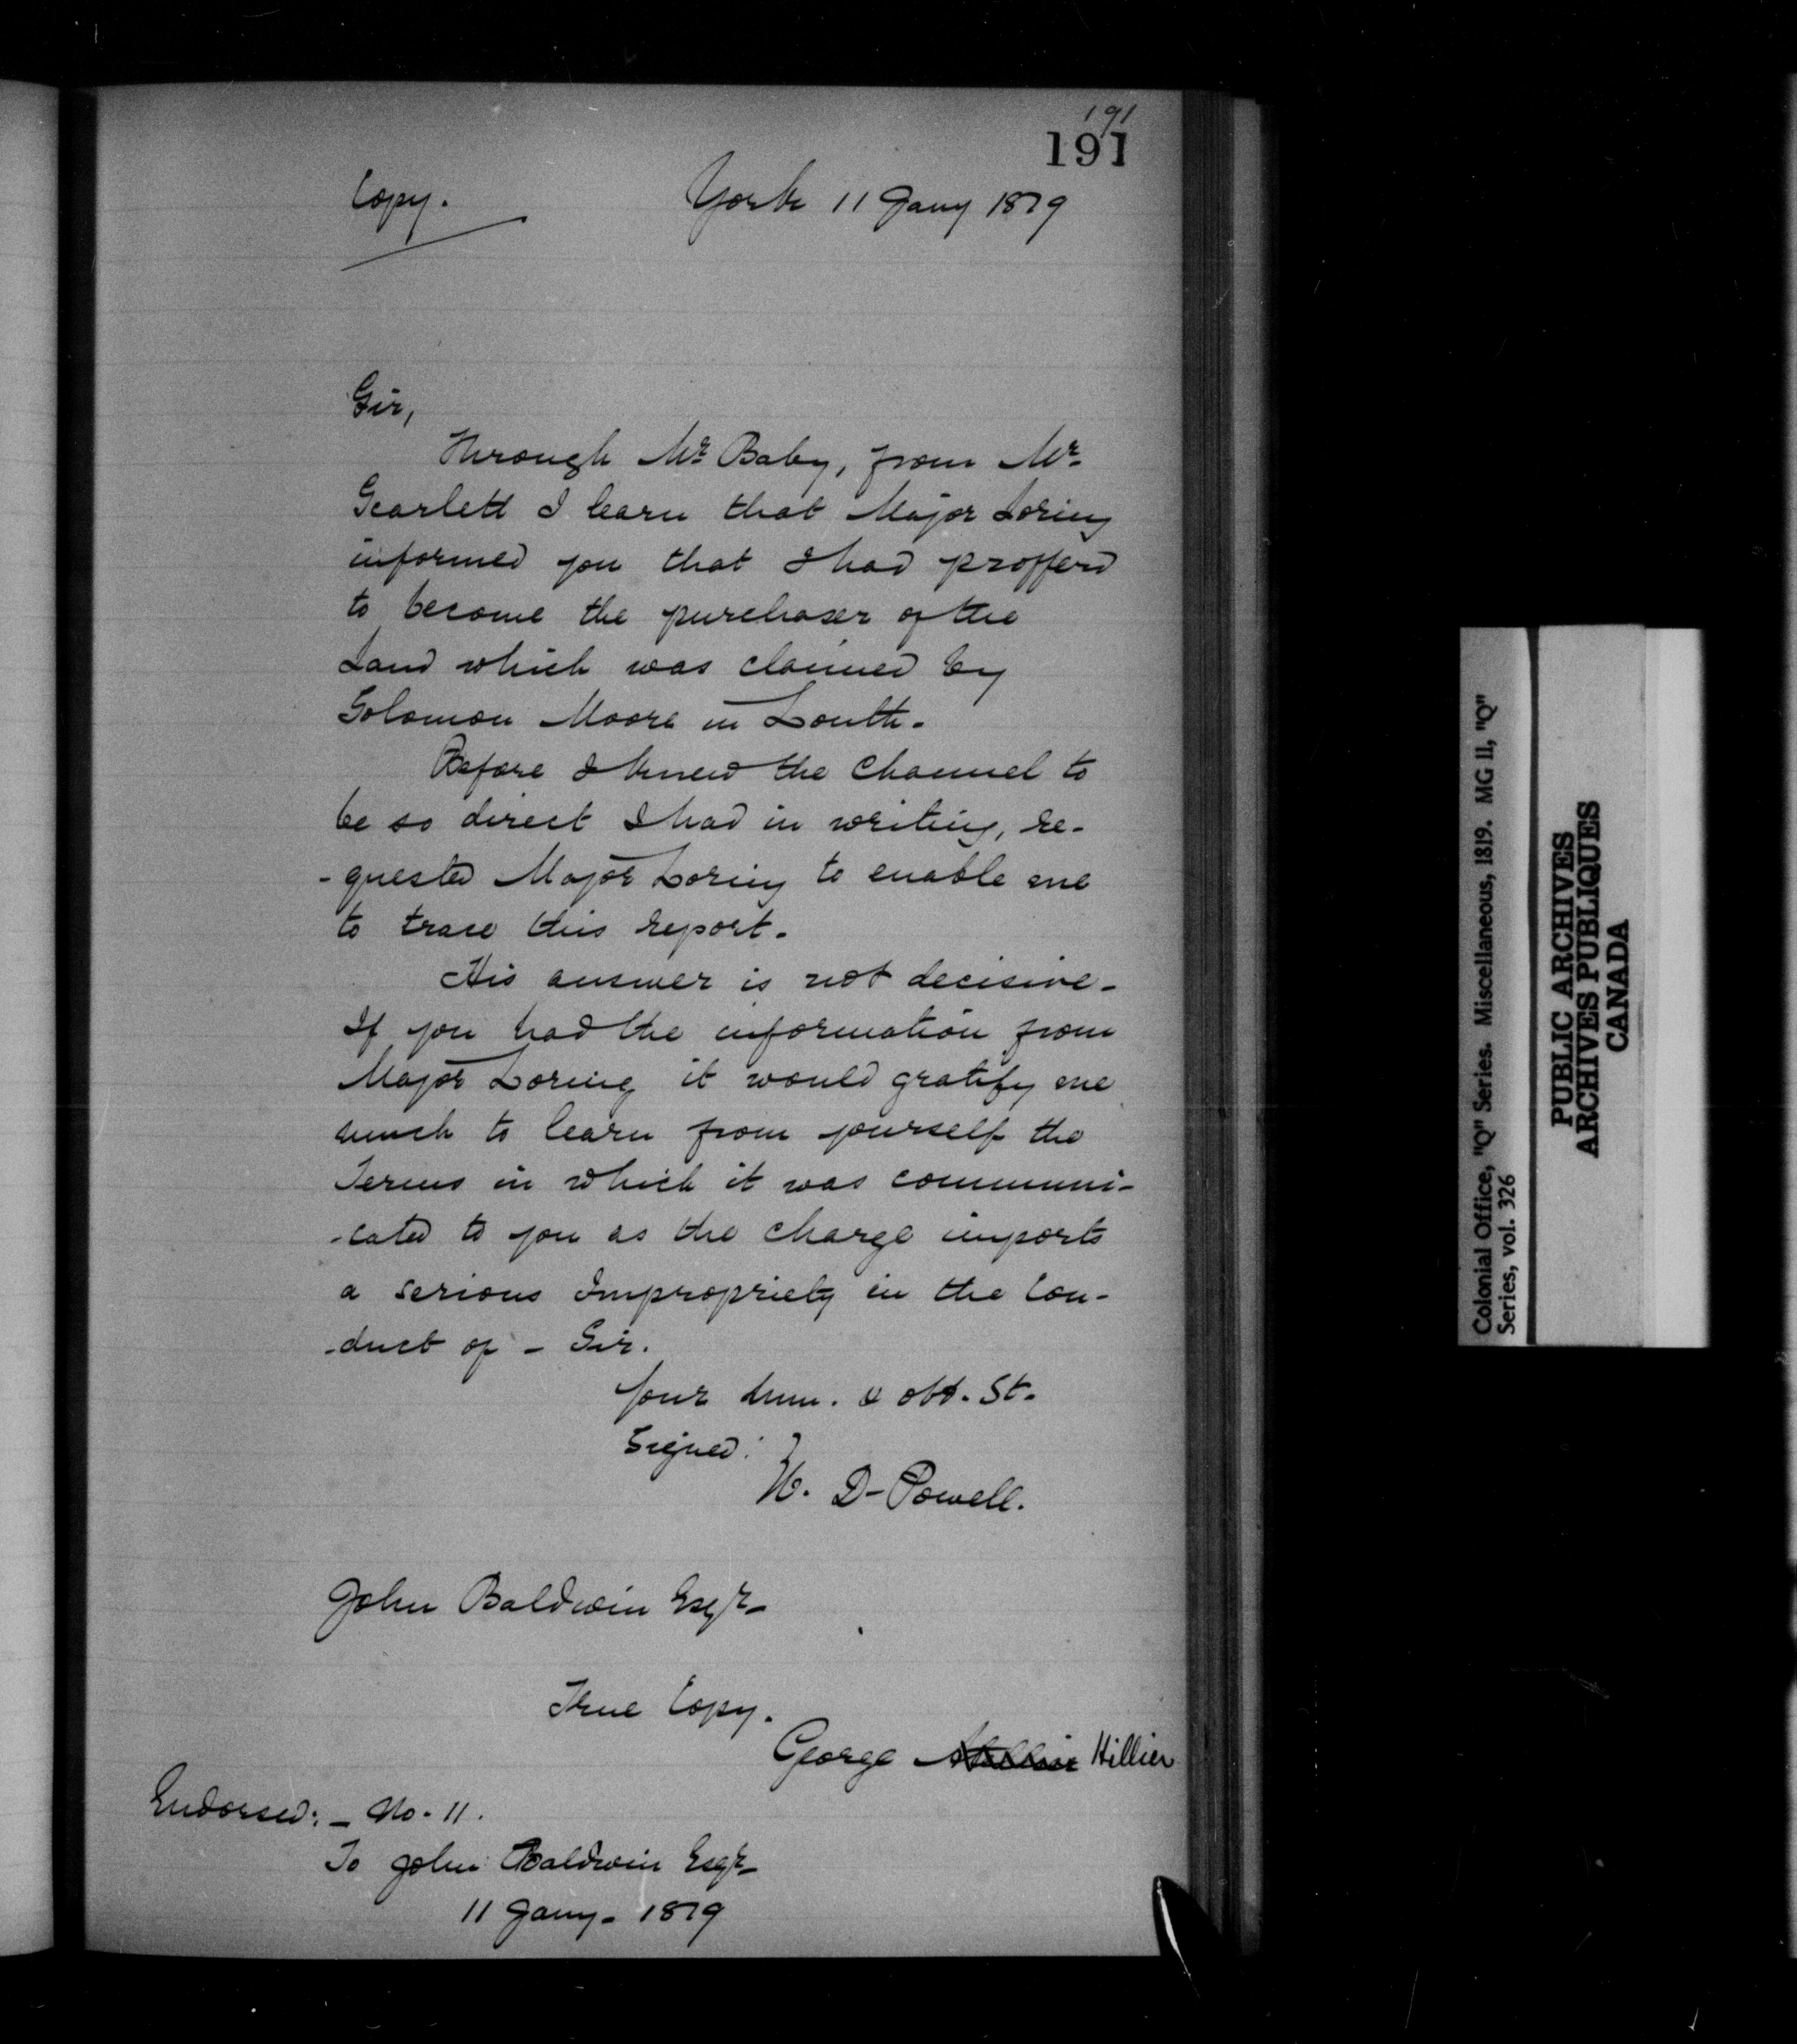 191
191
Copy. York 11 Jany 1819
Sir,
Through Mr. Baby, from Mr.
Scarlett I learn that Major Loring
informed you that I had profferd
to become the purchaser of the
Land which was claimed by
Solomon Moore in Louth.
Before I knew the Channel to
be so direct I had in writing, re-
-quested Major Loring to enable me
to trace this report.
His answer is not decisive.
If you had the information from
Major Loring it would gratify me
much to learn from yourself the
Terms in which it was communi-
-cated to you as the charge imports
a serious Impropriety in the Con-
-duct of - Sir.
Your hum. & obt. St.
Signed:
W. D- Powell.
John Baldwin Esqr-
True Copy.
George Hillier
Endorsed: - No. 11.
To John Baldwin Esqr-
11 Jany- 1819
Colonial Office, "Q" Series. Miscellaneous, 1819. MG 11, "Q"
Series, vol. 326
PUBLIC ARCHIVES
ARCHIVES PUBLIQUES
CANADA